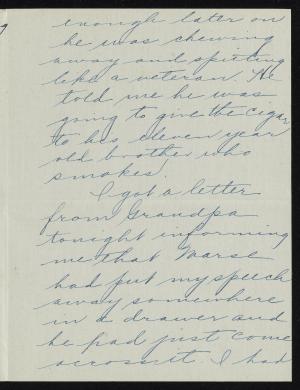 enough later on
he was chewing
away and spitting
like a veteran. He
told me he was
going to give the cigar
to his eleven year
old brother who
smokes.
I got a letter
from Grandpa
tonight informing
me that Marse
had put my speech
away somewhere
in a drawer and
he had just come
across it I had